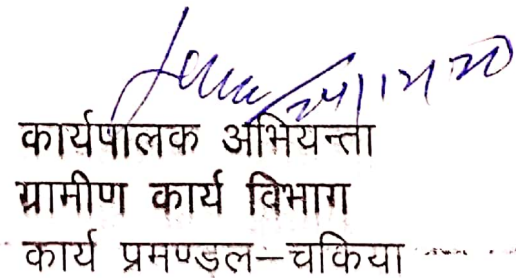 24/12/20
कार्यपालक अभियन्ता
ग्रामीण कार्य विभाग
कार्य प्रमण्डल–चकिया